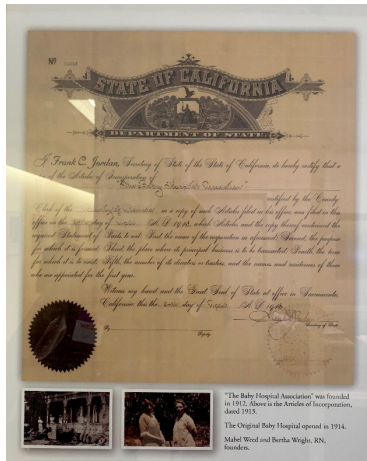 Nº
STATE OF CALIFORNIA
DEPARTMENT OF STATE
I, Frank C. Jordan, Secretary of State of the State of California, do hereby certify that a
of the Articles of Incorporation of
certified by the County
Clerk of the as a copy of such Articles filed in his office, was filed in this
office on the day of A.D. 19 which Articles and the copy thereof contained the
required Statement of Facts, to wit: First, the name of the corporation as aforesaid; Second, the purpose
for which it is formed; Third, the place where its principal business is to be transacted; Fourth, the term
for which it is to exist; Fifth, the number of its directors or trustees, and the names and residences of those
who are appointed for the first year.
Witness my hand and the Great Seal of State at office in Sacramento,
California this the day of A.D. 19
Secretary of State
By
Deputy
"The Baby Hospital Association" was founded
in 1912. Above is the Articles of Incorporation,
dated 1913.
The Original Baby Hospital opened in 1914.
Mabel Weed and Bertha Wright, RN,
founders.